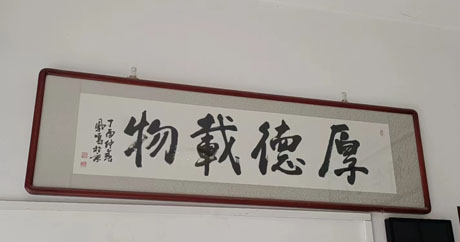 厚德載物
丁酉仲春